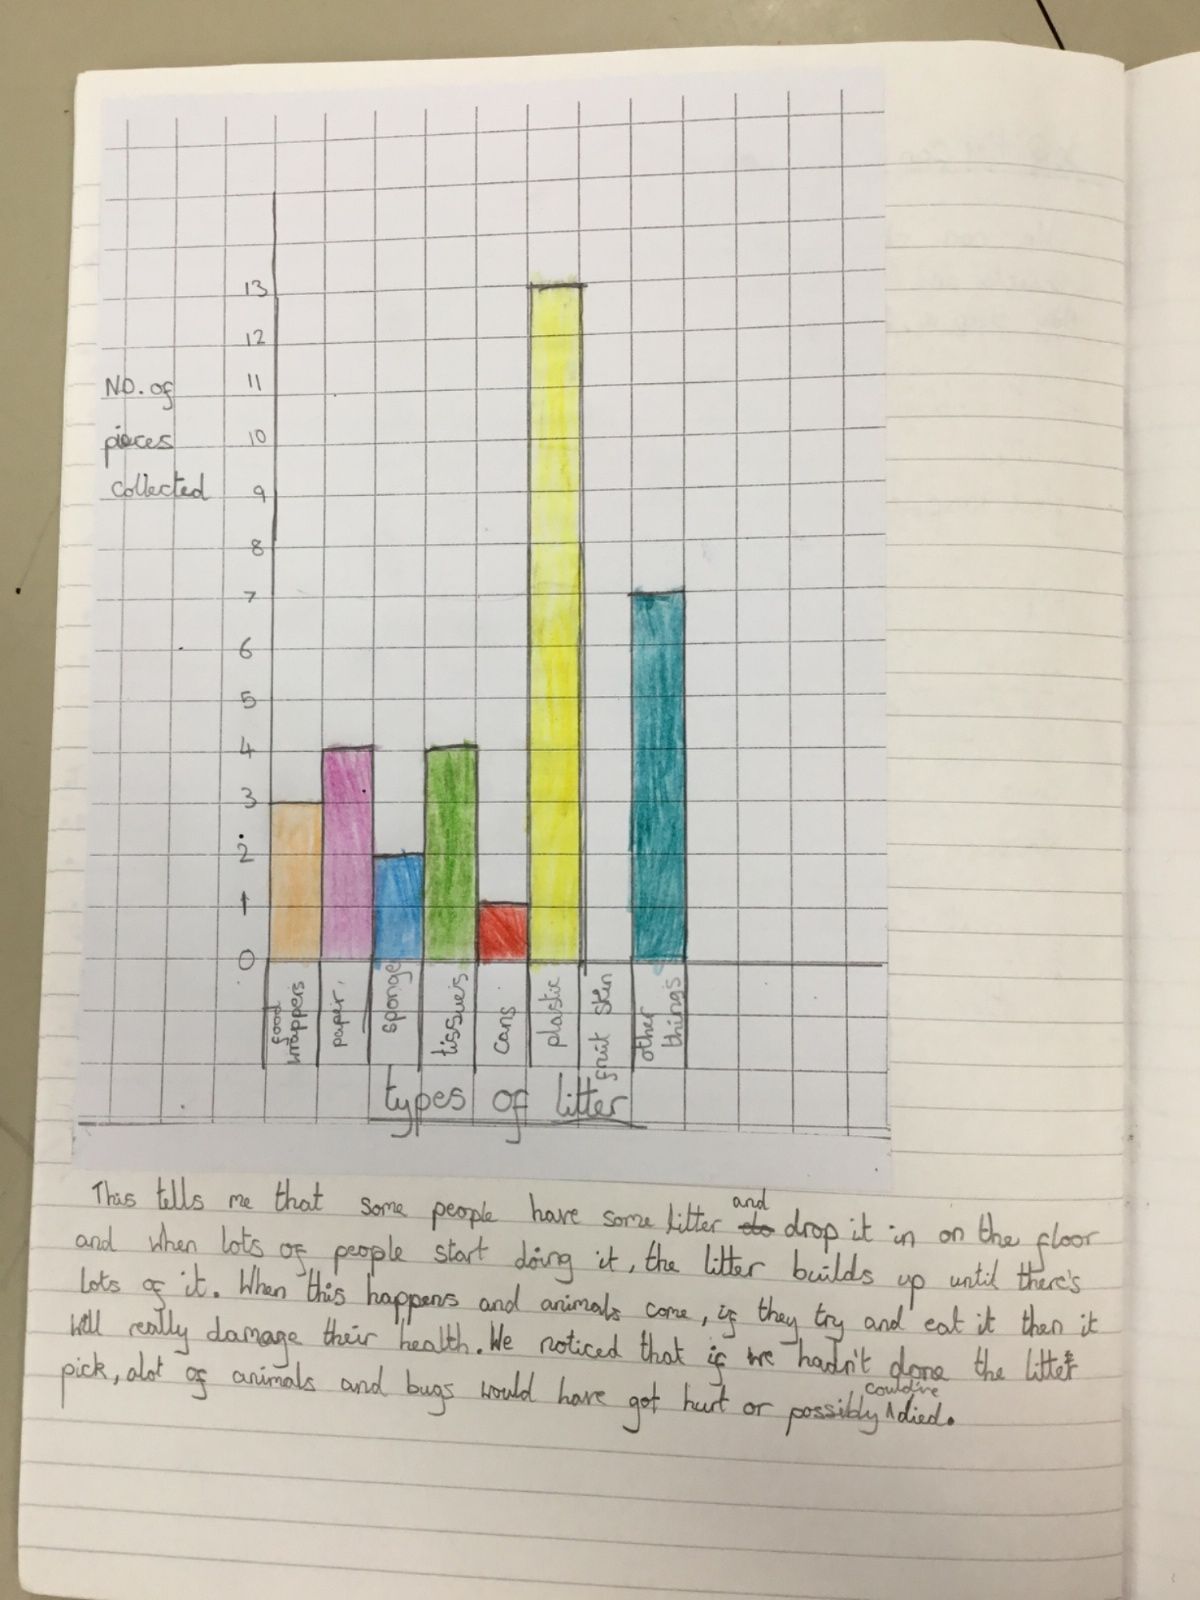 13
12
11
10
9
8
7
6
5
4
3
2
1
0
NO. of
pieces
collected
food
wrappers
paper.
sponge
tissue's
cans
plastic
fruit skin
other
things
types of litter
This tells me that some people have some litter and do drop it in on the floor
and when lots of people start doing it, the litter builds up until there's
lots of it. When this happens and animals come, if they try and eat it then it
will really damage their health. We noticed that if we hadn't done the litter
pick, alot of animals and bugs would have got hurt or possibly could've died.